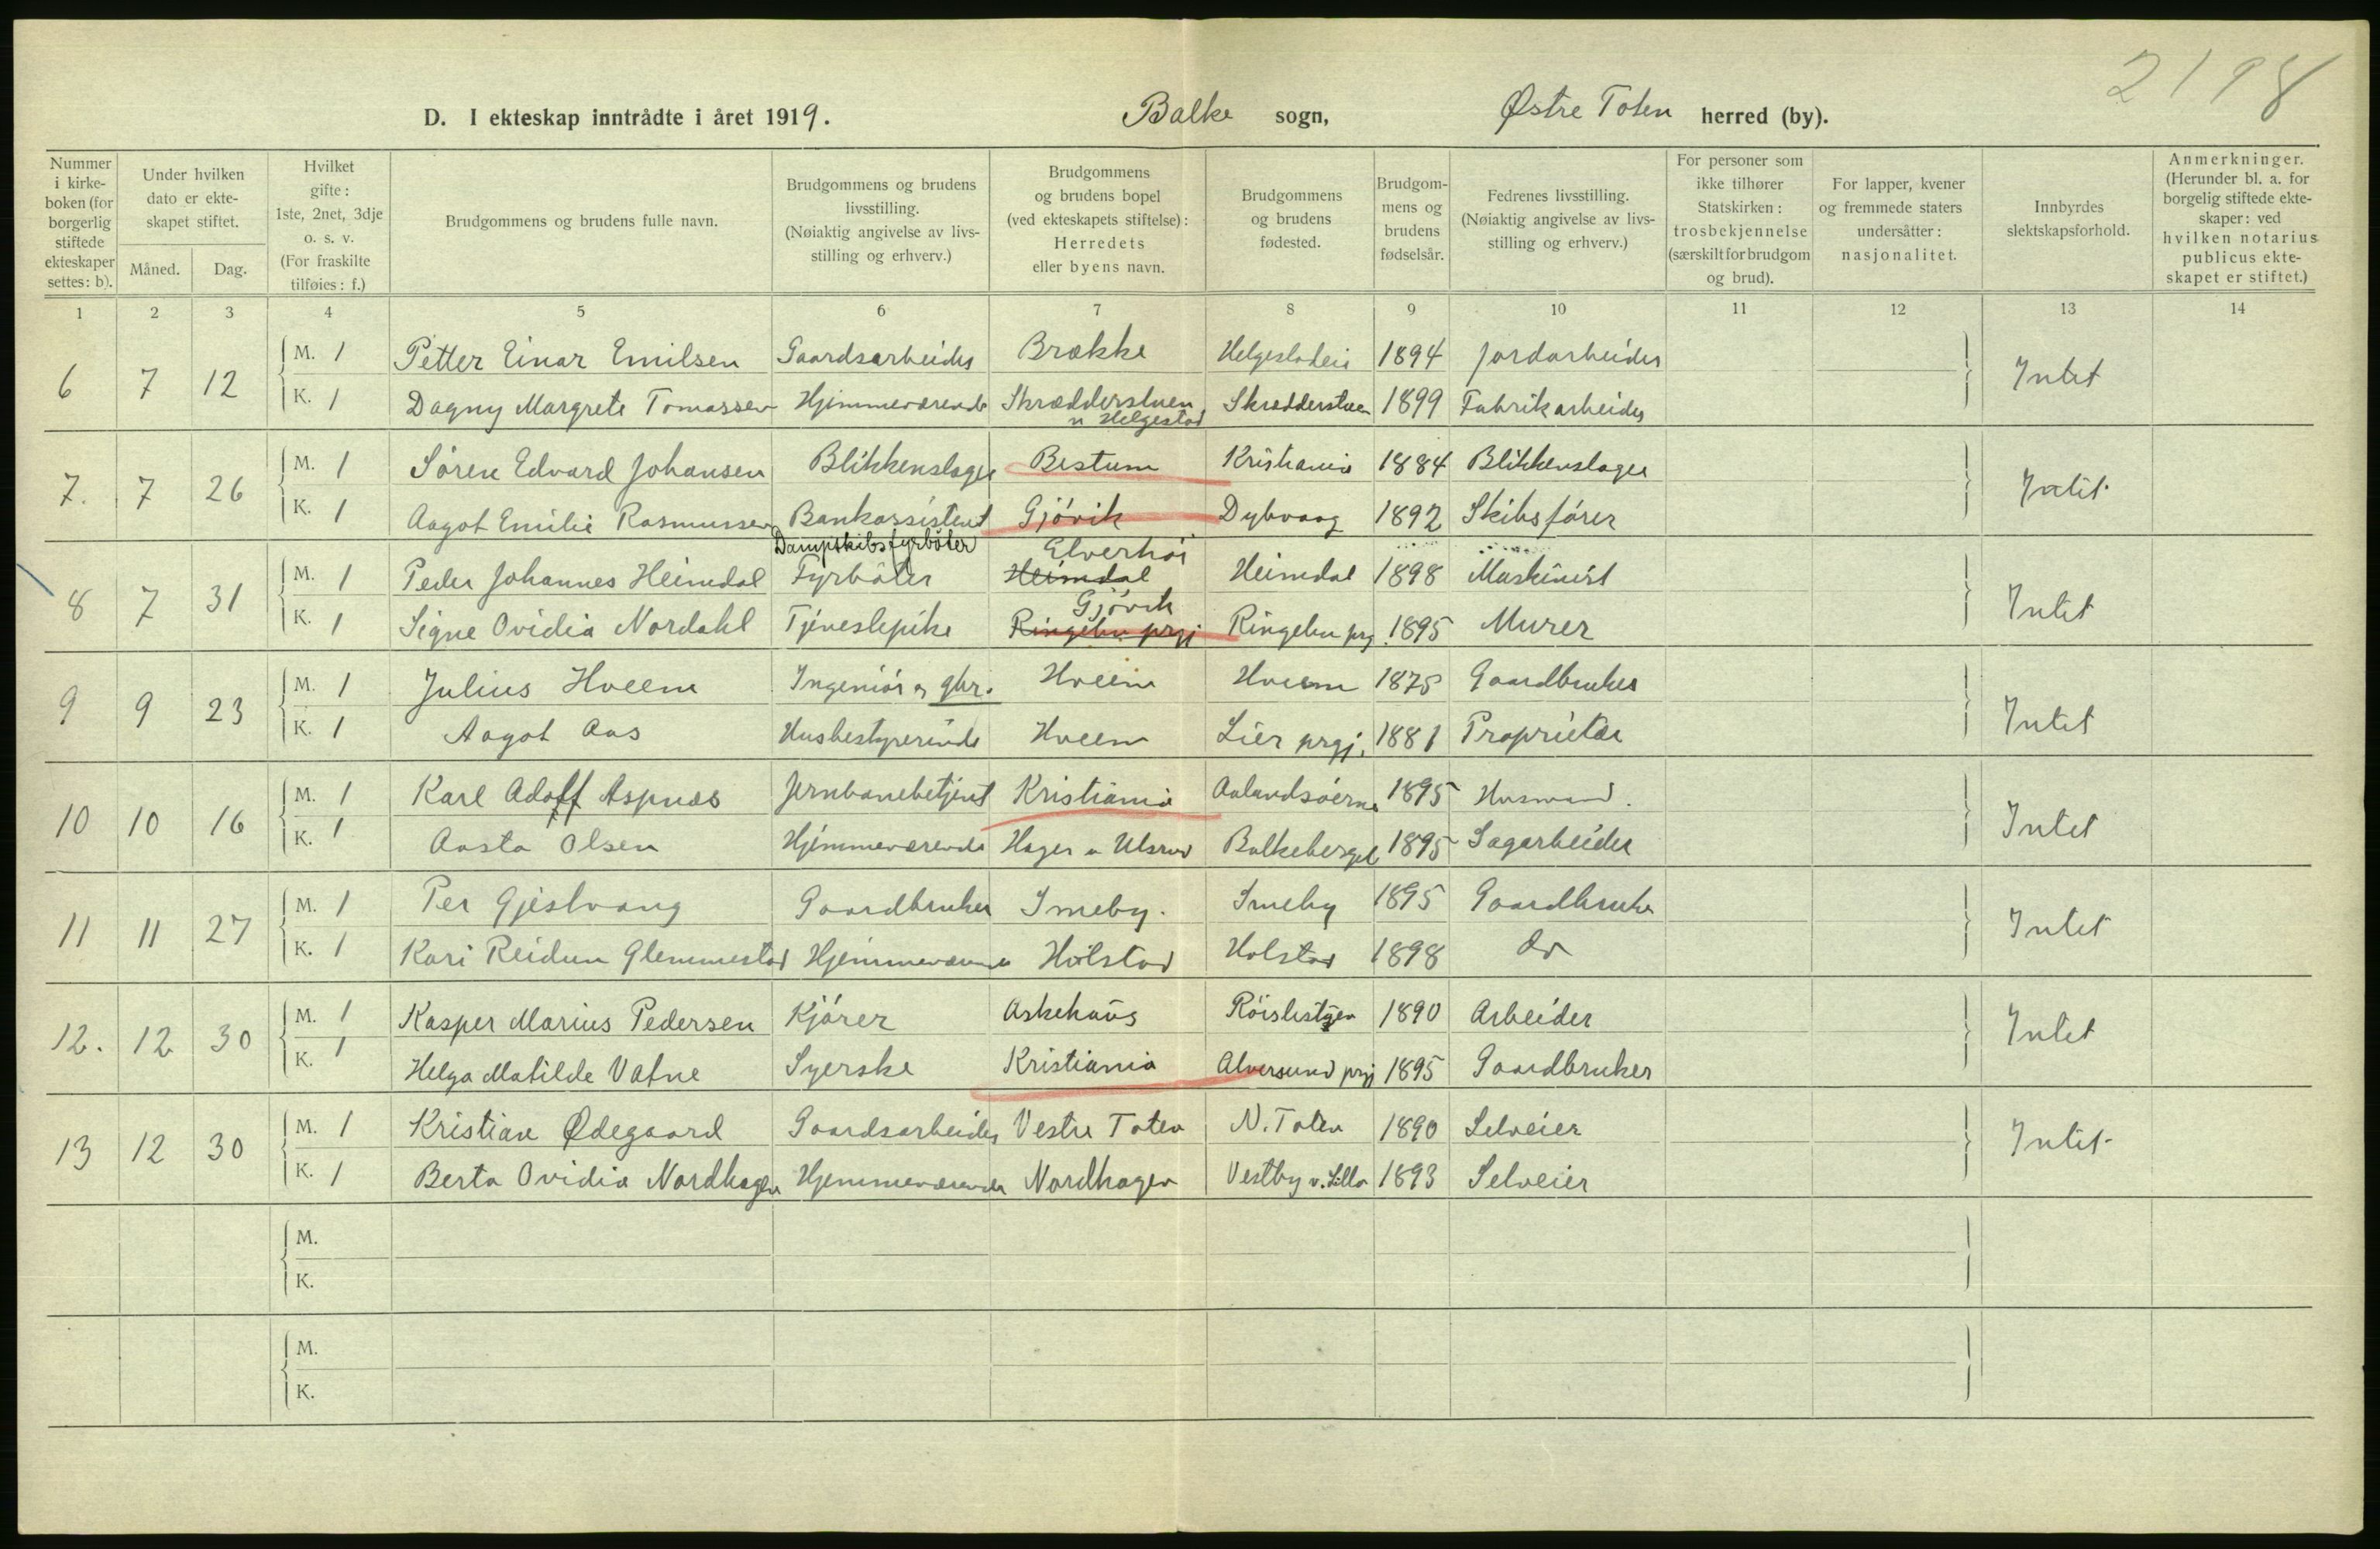 2198
D. I ekteskap inntrådte i året 1919. Balke sogn, Østre Toten herred (by).
Nummer i kirkeboken (for borgerlig stiftede ekteskaper settes: b).
Under hvilken dato er ekteskapet stiftet.
Måned. Dag.
Hvilket gifte: 1ste, 2net, 3dje o. s. v. (For fraskilte tilføies: f.)
Brudgommens og brudens fulle navn.
Brudgommens og brudens livsstilling. (Nøiaktig angivelse av livsstilling og erhverv.)
Brudgommens og brudens bopel (ved ekteskapets stiftelse): Herredets eller byens navn.
Brudgommens og brudens fødested.
Brudgommens og brudens fødselsår.
Fedrenes livsstilling. (Nøiaktig angivelse av livsstilling og erhverv.)
For personer som ikke tilhører Statskirken: trosbekjennelse (særskilt for brudgom og brud).
For lapper, kvener og fremmede staters undersåtter: nasjonalitet.
Innbyrdes slektskapsforhold.
Anmerkninger. (Herunder bl. a. for borgelig stiftede ekteskaper: ved hvilken notarius publicus ekteskapet er stiftet.)
1 2 3 4 5 6 7 8 9 10 11 12 13 14
6 7 12 M. 1 Petter Einar Emilsen Gaardsarbeider Brække Helgestadeie 1894 Jordarbeider Intet
K. 1 Dagny Margrete Tomassen Hjemmeværende Skrædderstuen u Helgestad Skrædderstuen 1899 Fabrikarbeider
7. 7 26 M. 1 Sören Edvard Johansen Blikkenslager Bestum Kristiania 1884 Blikkenslager Intet
K. 1 Aagot Emilie Rasmussen Bankassistent Gjövik Dybvaag 1892 Skibsförer
Dampskibsfyrböter Elverhöi
8 7 31 M. 1 Peder Johannes Heimdal Fyrböter Heimdal Heimdal 1898 Maskinist Intet
Gjövik
K. 1 Signe Ovidia Nordahl Tjenestepike Ringebu prgj Ringebu prg. 1895 Murer
9 9 23 M. 1 Julius Hveem Ingeniör og gbr. Hveem Hveem 1875 Gaardbruker Intet
K. 1 Aagot Aas Husbestyrerinde Hveem Lier prgj. 1881 Proprietær
10 10 16 M. 1 Karl Adolf Aspnæs Jernbanebetjent Kristiania Aalandsöerne 1895 Husmand. Intet
K. 1 Aasta Olsen Hjemmeværende Hagen u Ulsrud Balkeberget 1895 Sagarbeider
11 11 27 M. 1 Per Gjestvang Gaardbruker Smeby. Smeby 1895 Gaardbruker Intet
K. 1 Kari Reidun Glemmestad Hjemmeværende Holstad Holstad 1898 do
12. 12 30 M. 1 Kasper Marius Pedersen Kjörer Askehaug 1890 Arbeider Intet
K. 1 Helga Matilde Vatne Syerske Kristiania Alversund prgj 1895 Gaardbruker
13 12 30 M. 1 Kristian Ødegaard Gaardsarbeider Vestre Toten N. Toten 1890 Selveier Intet
K. 1 Berta Ovidia Nordhagen Hjemmeværende Nordhagen Vestby v. Lilla 1893 Selveier
M.
K.
M.
K.